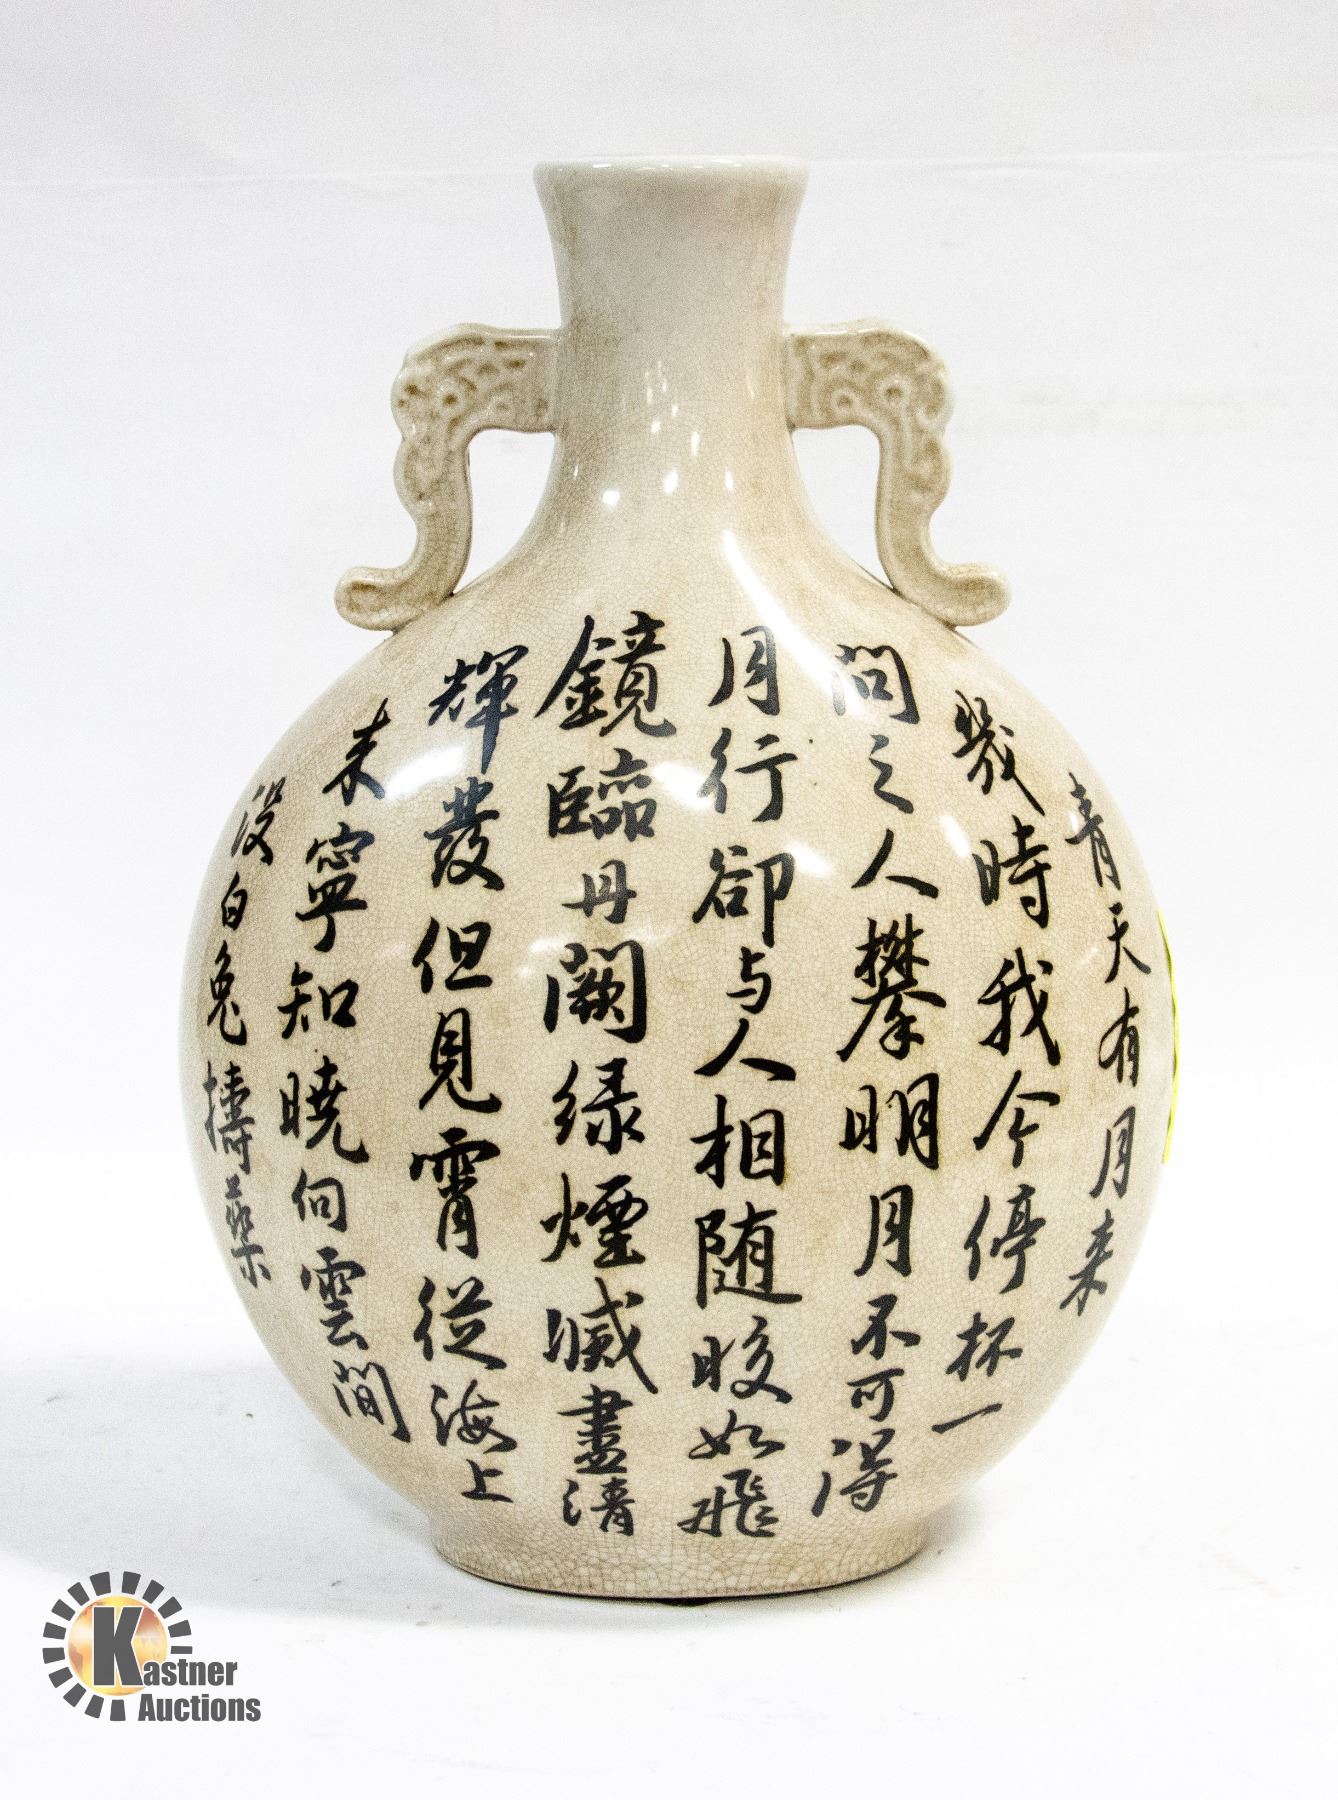 青天有月来
幾時我今停杯一
問之人攀明月不可得
月行卻与人相随皎如飛
鏡臨丹闕緑煙滅盡清
輝發但見宵從海上
来寧知曉向雲間
没白兔擣藥
Kastner
Auctions